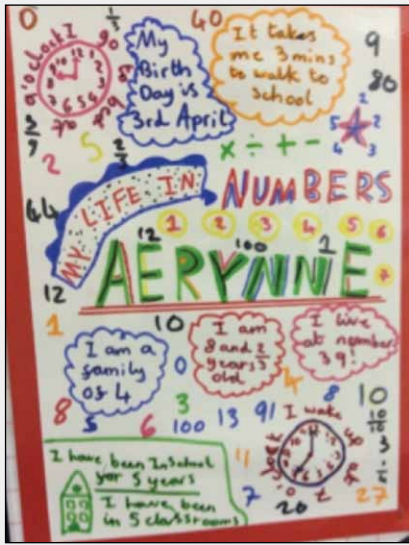 0
1/3
40
9
80
9 o'clock I go
to bed
12
My
Birth
Day is
3rd April
It takes
me 3 mins
to walk to
school
2
5
2/3
× ÷ + -
5 2 2 4 3
44
12
MY LIFE IN NUMBERS
1 2 3 4 5 6 7
12 100 1
AERYNNE
1
10
I am a
family
of 4
I am
8 and 2/3
years
old
I live
at number
39!
0
4
8
10
8
5
6
3
100
13
91
10/10
3
I wake up
7 o'clock
I have been In school
for 5 years
I have been
in 5 classrooms
11
7
20
27